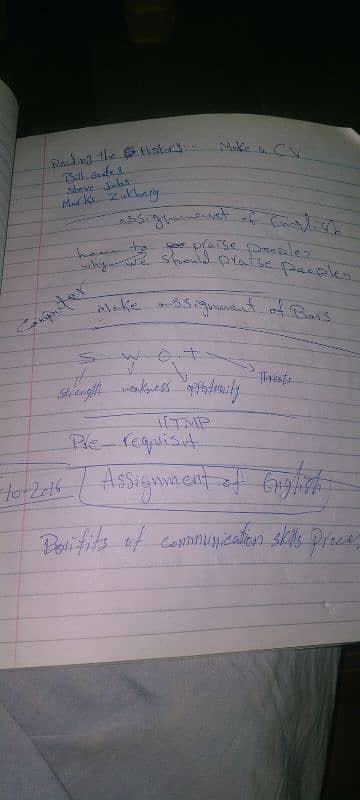 Reading the History... Make a CV
Bill Gates
Steve Jobs
Marks Zukberg
assignment of English
how to praise peoples
why we should praise peoples
Computer
Make assignment of Bais
S W O T
strength weakness opportunity Threats
HTMP
Pre-requisit
10-2016 Assignment of English
Benifits of communication skills proces